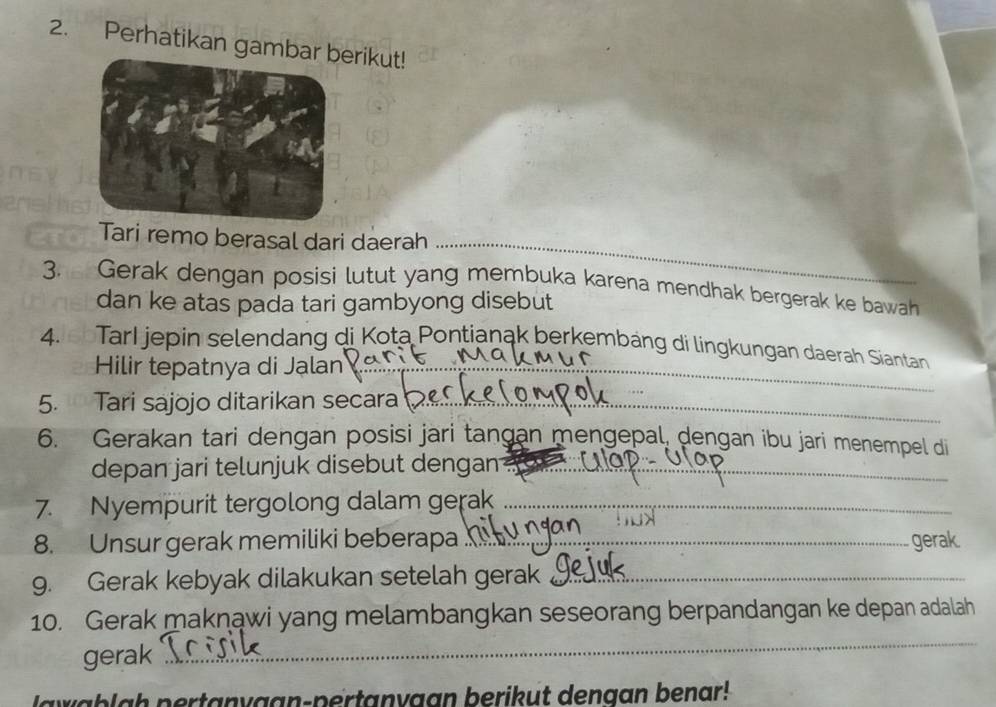 2. Perhatikan gambar berikut!
Tari remo berasal dari daerah
3. Gerak dengan posisi lutut yang membuka karena mendhak bergerak ke bawah
dan ke atas pada tari gambyong disebut
4. TarI jepin selendang di Kota Pontianak berkembang di lingkungan daerah Siantan
Hilir tepatnya di Jalan Parit Makmur
5. Tari sajojo ditarikan secara berkelompok
6. Gerakan tari dengan posisi jari tangan mengepal, dengan ibu jari menempel di
depan jari telunjuk disebut dengan Ulap - Ulap
7. Nyempurit tergolong dalam gerak
8. Unsur gerak memiliki beberapa hitungan gerak.
9. Gerak kebyak dilakukan setelah gerak gejuk
10. Gerak maknawi yang melambangkan seseorang berpandangan ke depan adalah
gerak Trisik
Jawablah pertanyaan-pertanyaan berikut dengan benar!